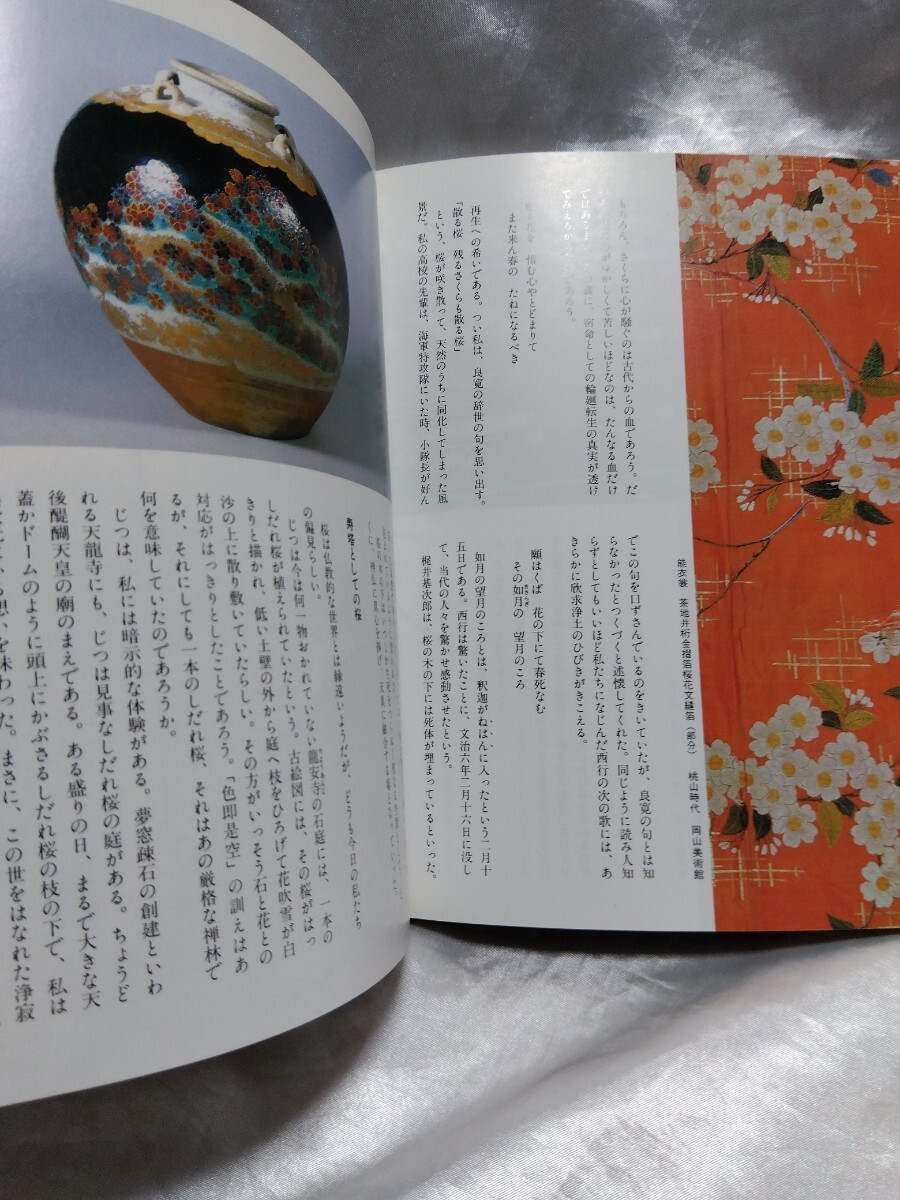 もちろん、さくらに心が騒ぐのは古代からの血であろう。だ
がゆかしくて苦しいほどなのは、たんなる血だけ
ではあるま
に、宿命としての輪廻転生の真実が透け
てみえるか
であろう。
惜む心やとどまりて
また来ん春の　たねになるべき
再生への希いである。つい私は、良寛の辞世の句を思い出す。
「散る桜　残るさくらも散る桜」
という、桜が咲き散って、天然のうちに同化してしまった風
景だ。私の高校の先輩は、海軍特攻隊にいた時、小隊長が好ん
でこの句を口ずさんでいるのをきいていたが、良寛の句とは知
らなかったとつくづくと述懐してくれた。同じように読み人知
らずとしてもいいほど私たちになじんだ西行の次の歌には、あ
きらかに欣求浄土のひびきがきこえる。
願はくば　花の下にて春死なむ
その如月の　望月のころ
きさらぎ
如月の望月のころとは、釈迦がねはんに入ったという二月十
五日である。西行は驚いたことに、文治六年二月十六日に没し
て、当代の人々を驚かせ感動させたという。
梶井基次郎は、桜の木の下には死体が埋まっているといった。
能衣裳　茶地井桁金摺箔桜花文縫箔（部分）　桃山時代　岡山美術館
野塔としての桜
桜は仏教的な世界とは縁遠いようだが、どうも今日の私たち
の偏見らしい。
じつは今は何一物おかれていない龍安寺の石庭には、一本の
りょうあんじ
しだれ桜が植えられていたという。古絵図には、その桜がはっ
きりと描かれ、低い土壁の外から庭へ枝をひろげて花吹雪が白
沙の上に散り敷いていたらしい。その方がいっそう石と花との
対応がはっきりとしたことであろう。「色即是空」の訓えはあ
るが、それにしても一本のしだれ桜、それはあの厳格な禅林で
何を意味していたのであろうか。
じつは、私には暗示的な体験がある。夢窓疎石の創建といわ
れる天龍寺にも、じつは見事なしだれ桜の庭がある。ちょうど
後醍醐天皇の廟のまえである。ある盛りの日、まるで大きな天
蓋かドームのように頭上にかぶさるしだれ桜の枝の下で、私は
を味わった。まさに、この世をはなれた浄寂